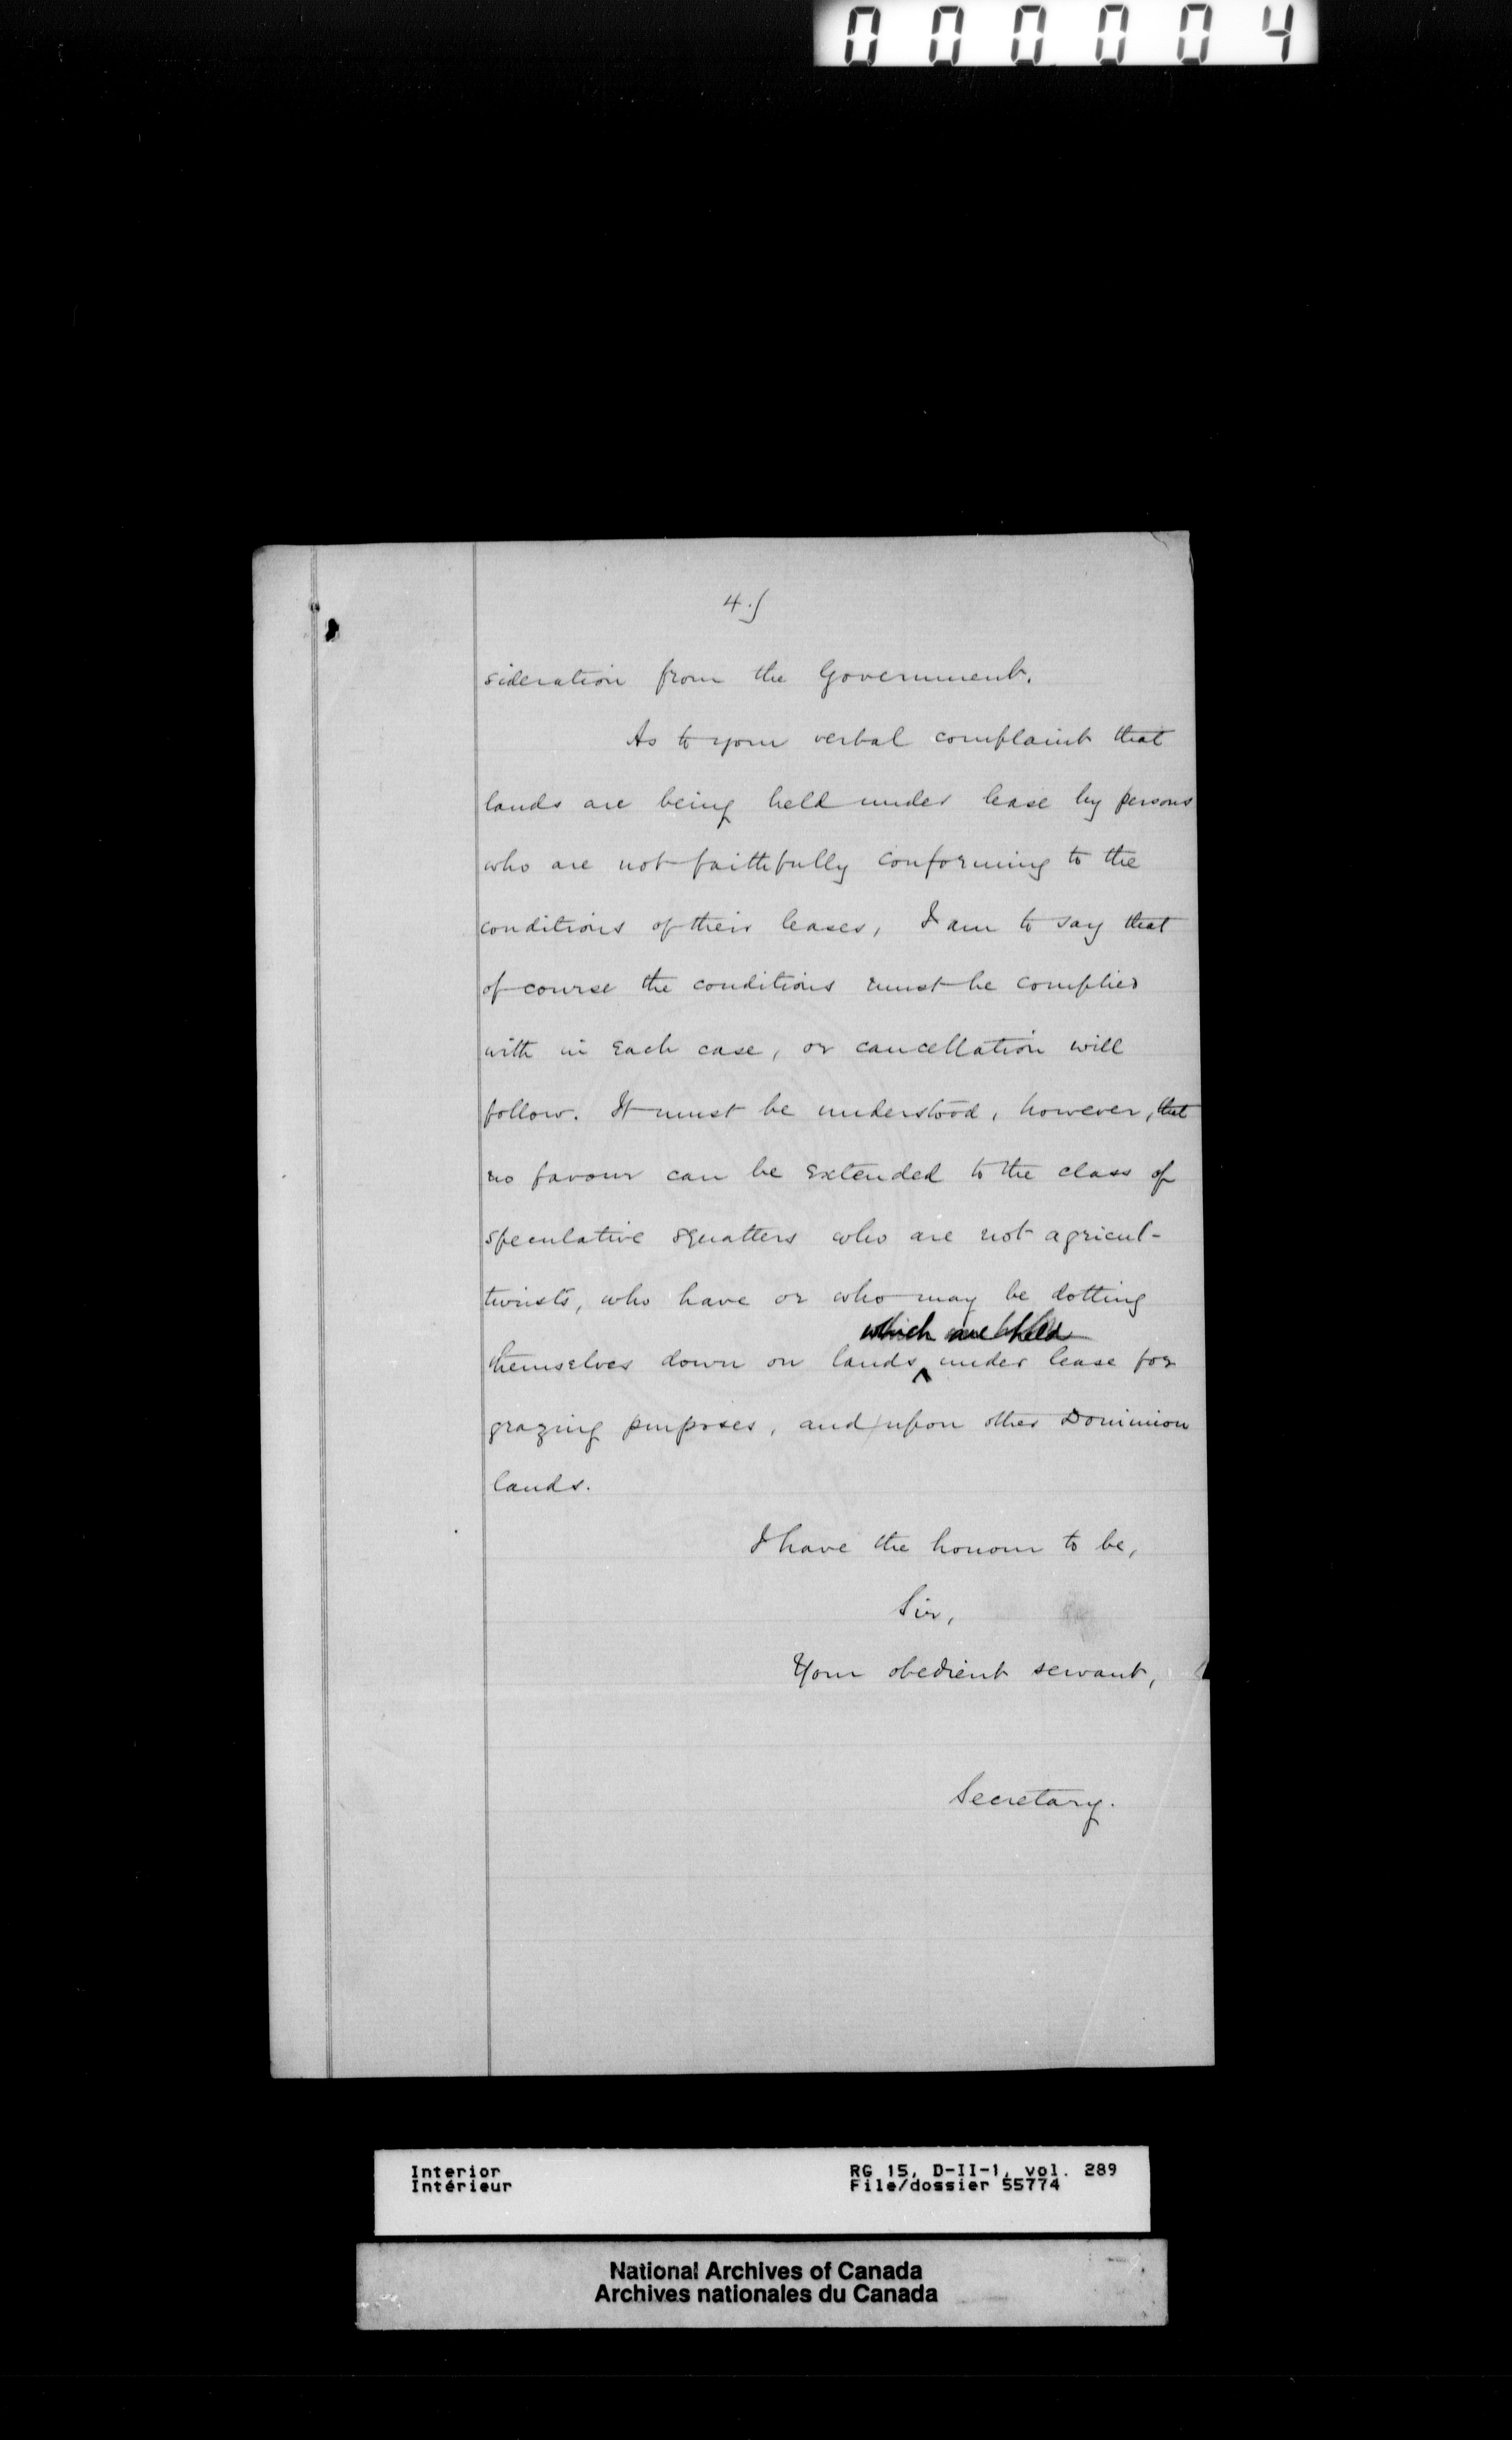 000004
4.)
sideration from the Government.
As to your verbal complaint that
lands are being held under lease by persons
who are not faithfully conforming to the
conditions of their leases, I am to say that
of course the conditions must be complied
with in each case, or cancellation will
follow. It must be understood, however, that
no favour can be extended to the class of
speculative squatters who are not agricul-
turists, who have or who may be dotting
which are held
themselves down on lands ^ under lease for
grazing purposes, and upon other Dominion
lands.
I have the honour to be,
Sir,
Your obedient servant,
Secretary.
Interior RG 15, D-II-1, vol. 289
Intérieur File/dossier 55774
National Archives of Canada
Archives nationales du Canada